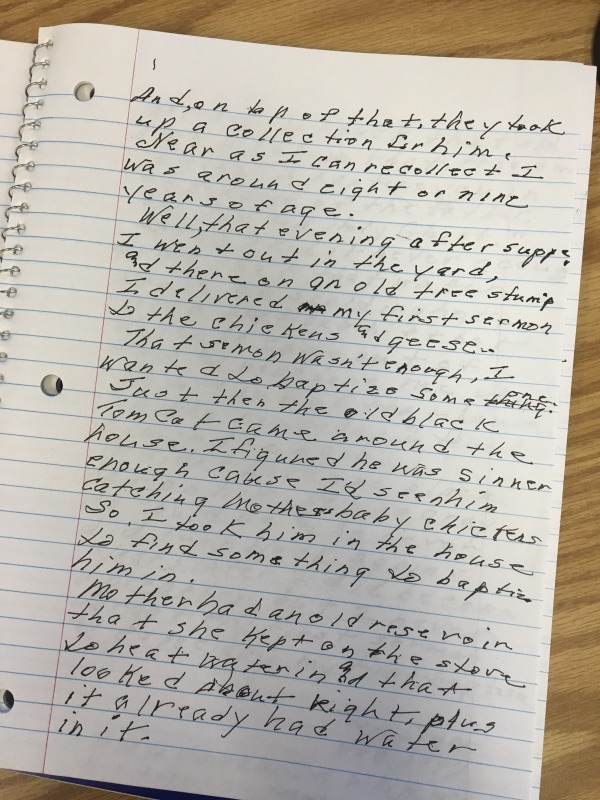 And, on top of that, they took
up a collection for him.
Near as I can recollect I
was around eight or nine
years of age.
Well, that evening after suppe.
I went out in the yard,
and there on an old tree stump
I delivered my first sermon
to the chickens and geese..
That semon wasn't enough, I
wanted to baptize some one.
Just then the old black
Tom Cat came around the
house. I figured he was sinner
enough cause I'd seen him
catching Mothers baby chickens
So. I took him in the house
to find something to baptize
him in.
Mother had an old reservoir
that she kept on the stove
to heat water in and that
looked about right, plus
it already had water
in it.